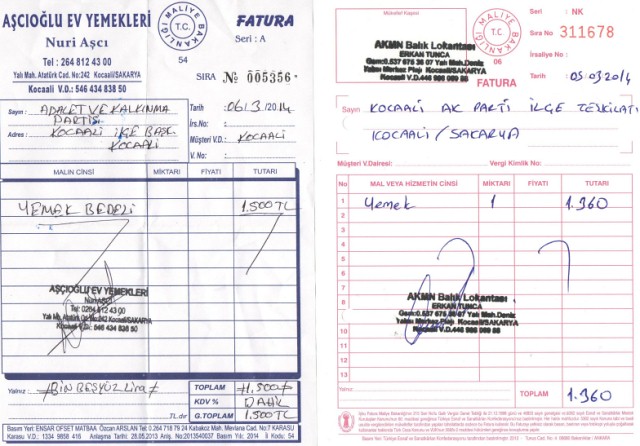 AŞÇIOĞLU EV YEMEKLERİ
Nuri Aşçı
Tel : 264 812 43 00
Yalı Mah. Atatürk Cad. No:242 Kocaali/SAKARYA
Kocaali V.D.: 546 434 838 50
MALİYE BAKANLIĞI
T.C.
54
FATURA
Seri : A
SIRA No 005356
Sayın : ADALET VE KALKINMA
PARTİSİ
Adres : KOCAALİ İLÇE BAŞK.
KOCAALİ
Tarih : 06/3/2014
İrs.No :
Müşteri V.D.: KOCAALİ
V. No :
MALIN CİNSİ MİKTARI FİYATI TUTARI
YEMEK BEDELİ 1.500TL
AŞÇIOĞLU EV YEMEKLERİ
Nuri AŞÇI
Tel: 0264 812 43 00
Yalı Mh. Atatürk Cd. No:242 Kocaali/SAKARYA
Kocaali V.D.: 546 434 838 50
Yalnız : #BİN BEŞYÜZ Lira#
TL.dır
TOPLAM #1.500#
KDV % DAHİL
G.TOPLAM 1.500TL
Basım Yeri: ENSAR OFSET MATBAA Özcan ARSLAN Tel: 0.264 718 79 24 Kabakoz Mah. Mevlana Cad. No:7 KARASU
Karasu V.D.: 1334 9858 416 Anlaşma Tarihi: 28.05.2013 Anl. No:2013540037 Basım Yıl: 2014 9 Kodu: 54
Mükellef Kaşesi
AKMN Balık Lokantası
ERKAN TUNCA
Gsm:0.537 675 38 07 Yalı Mah.Deniz
Yalısı Merkez Plajı Kocaali/SAKARYA
Kocaali V.D.446 986 089 88
MALİYE BAKANLIĞI
T.C.
06
FATURA
Seri : NK
Sıra No 311678
İrsaliye No :
Tarih : 05.03.2014
Sayın KOCAALİ AK PARTİ İLÇE TEŞKİLATI
KOCAALİ/SAKARYA
Müşteri V.Dairesi: Vergi Kimlik No:
No MAL VEYA HİZMETİN CİNSİ MİKTARI FİYATI TUTARI
1 Yemek 1 1.360
2
3
4
5
6
7
8
AKMN Balık Lokantası
ERKAN TUNCA
Gsm:0.537 675 38 07 Yalı Mah.Deniz
Yalısı Merkez Plajı Kocaali/SAKARYA
Kocaali V.D.446 986 089 88
10
11
12
13
Yalnız:
TOPLAM 1.360